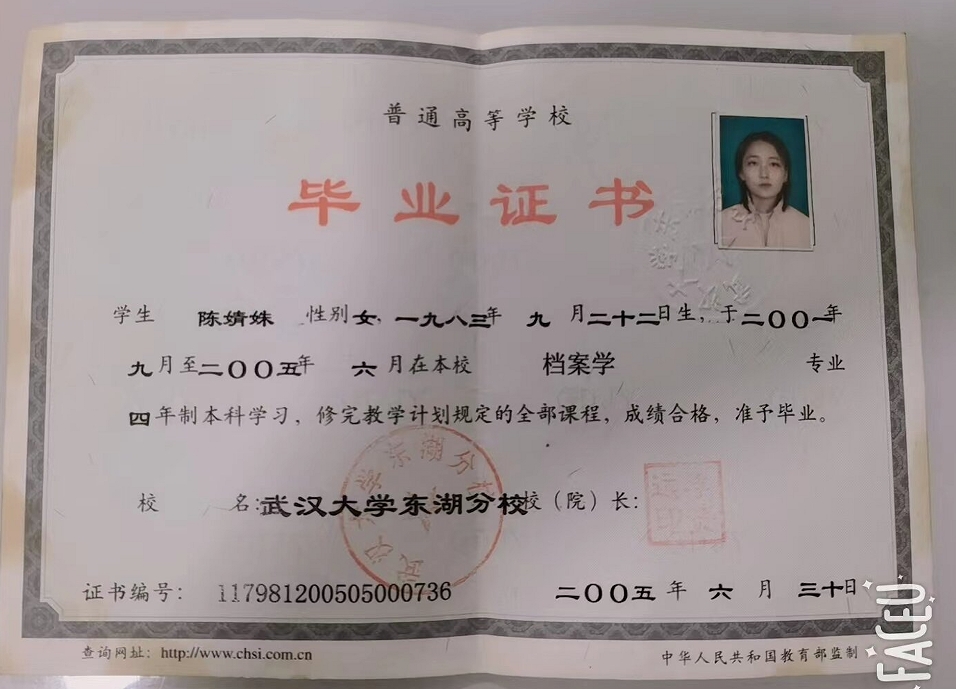 普通高等学校
毕业证书
学生 陈婧姝 性别女，一九八三年 九 月二十二日生，于二〇〇一年
九月至二〇〇五年 六 月在本校 档案学 专业
四年制本科学习，修完教学计划规定的全部课程，成绩合格，准予毕业。
校 名：武汉大学东湖分校校（院）长：
证书编号： 117981200505000736 二〇〇五 年 六 月 三十日
查询网址：http://www.chsi.com.cn 中华人民共和国教育部监制
武汉大学东湖分校
FACEU